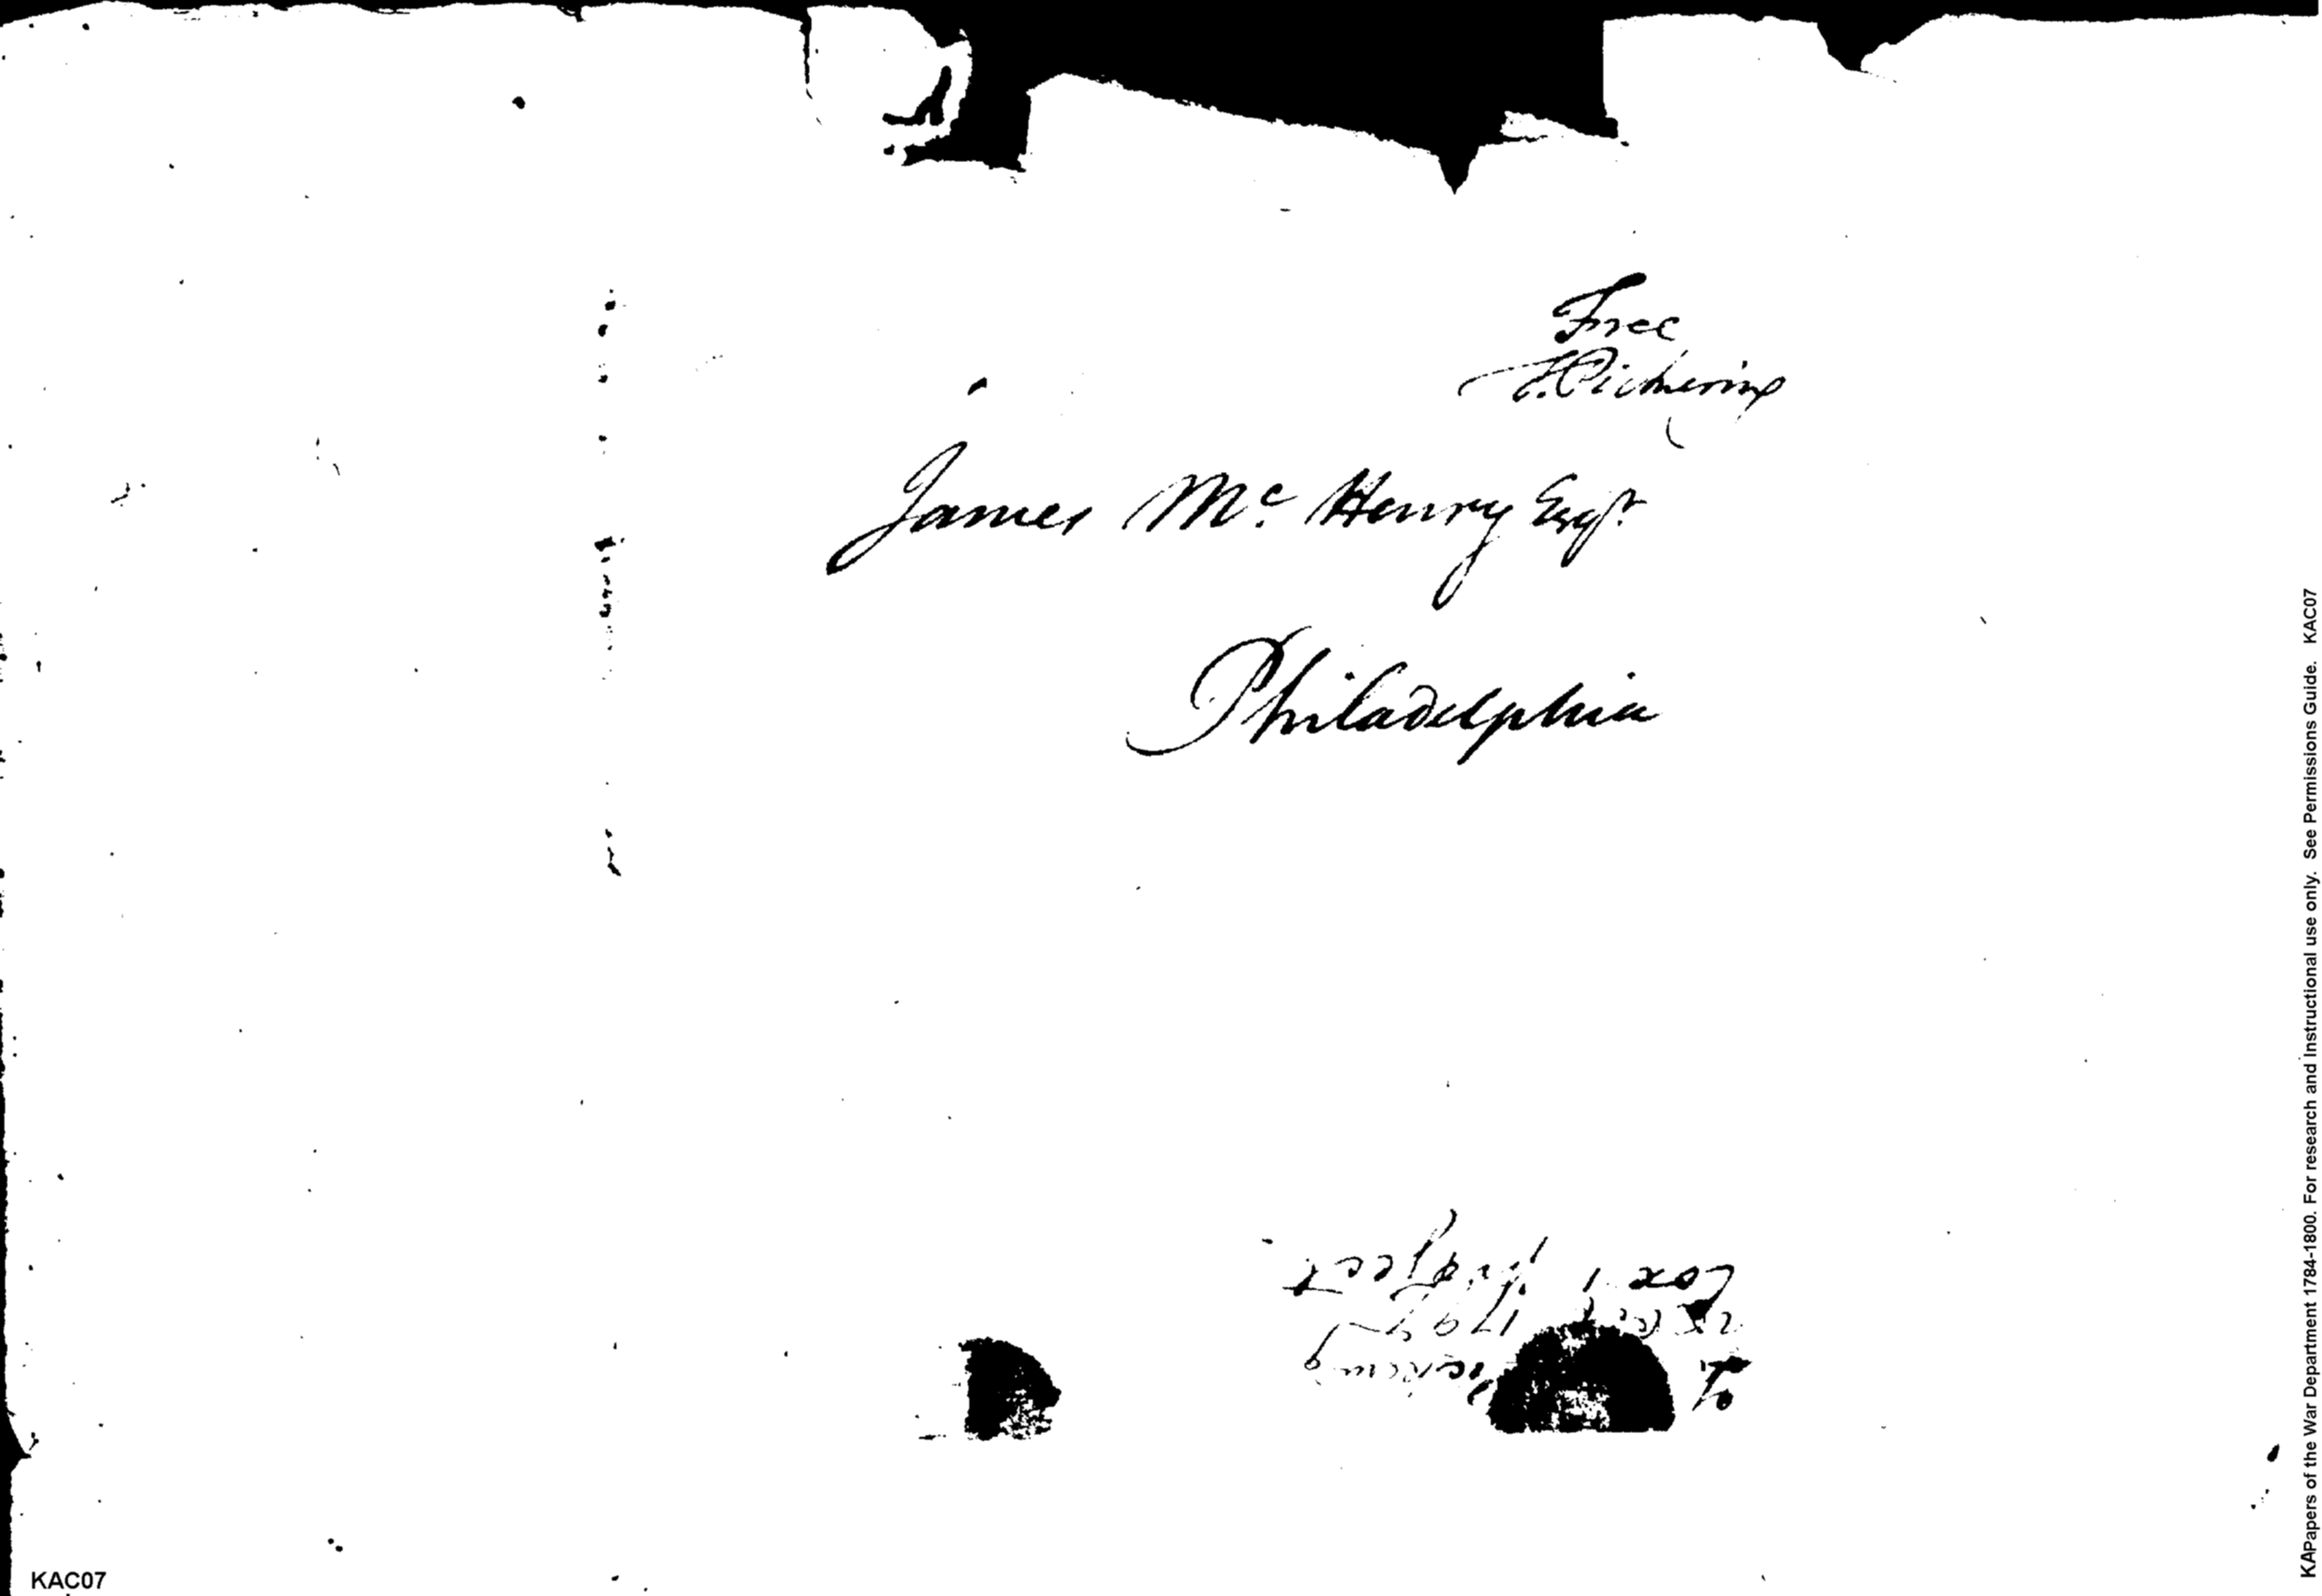 Free
T. Pickering
James Mc. Henry Esqr.
Philadelphia
To
KAC07
KAPapers of the War Department 1784-1800. For research and Instructional use only. See Permissions Guide. KAC07